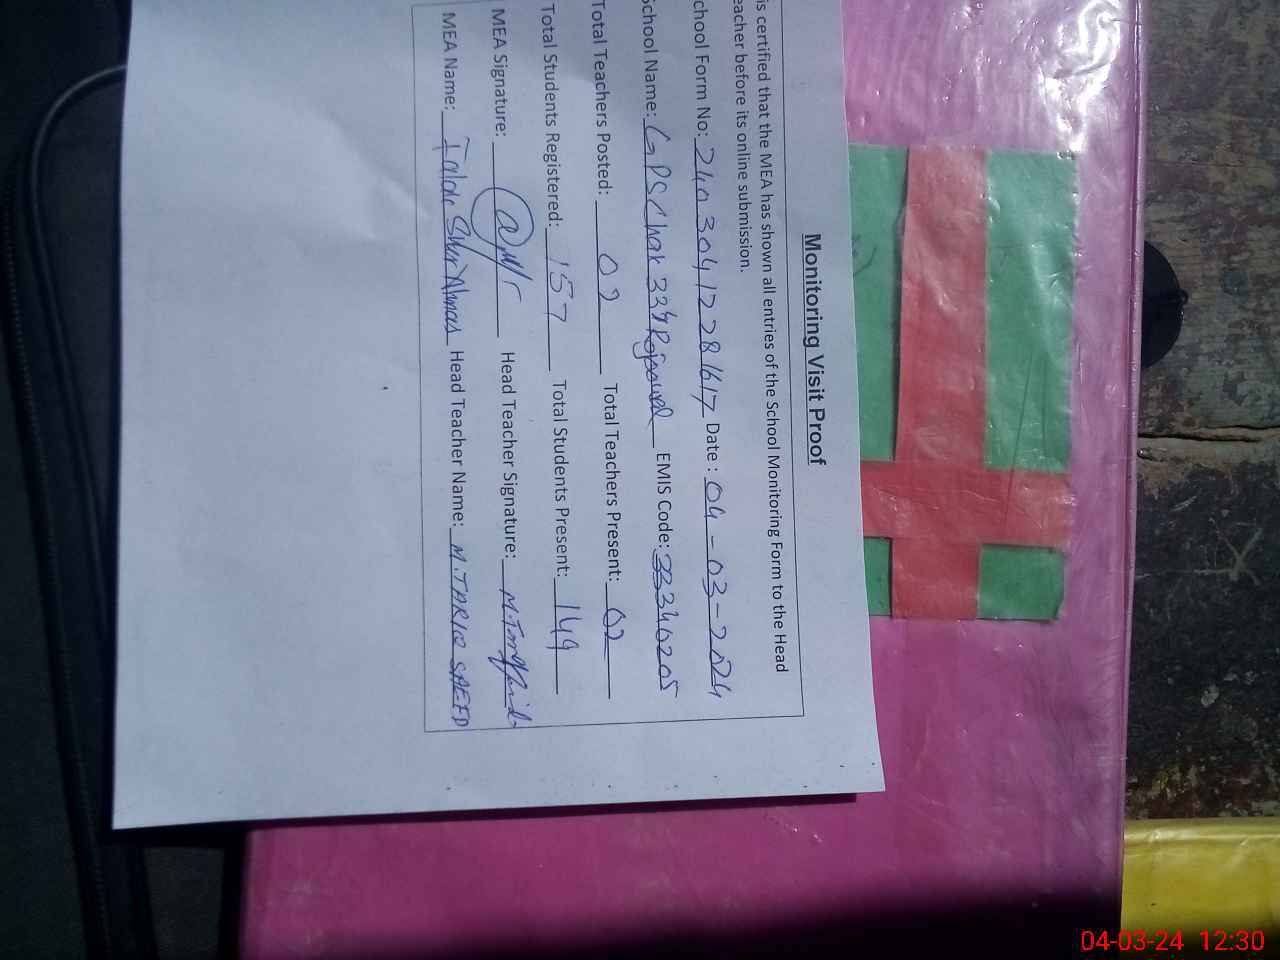 Monitoring Visit Proof
is certified that the MEA has shown all entries of the School Monitoring Form to the Head
eacher before its online submission.
chool Form No: 24030412281617 Date : 04-03-2024
School Name: GPS Chak 334 EMIS Code: 33340205
Total Teachers Posted: 02 Total Teachers Present: 02
Total Students Registered: 157 Total Students Present: 149
MEA Signature: Head Teacher Signature:
MEA Name: Sher Ahmad Head Teacher Name: M.TARIQ SAEED
04-03-24 12:30